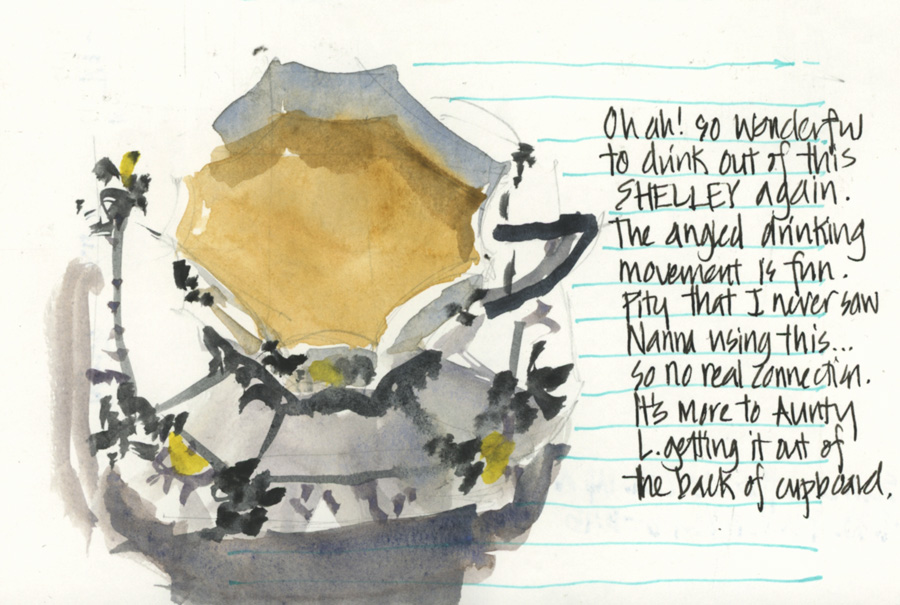 Oh ah! so wonderful
to drink out of this
SHELLEY again.
The angled drinking
movement is fun.
Pity that I never saw
Nanna using this...
so no real connection.
It's more to Aunty
L. getting it out of
the back of cupboard.